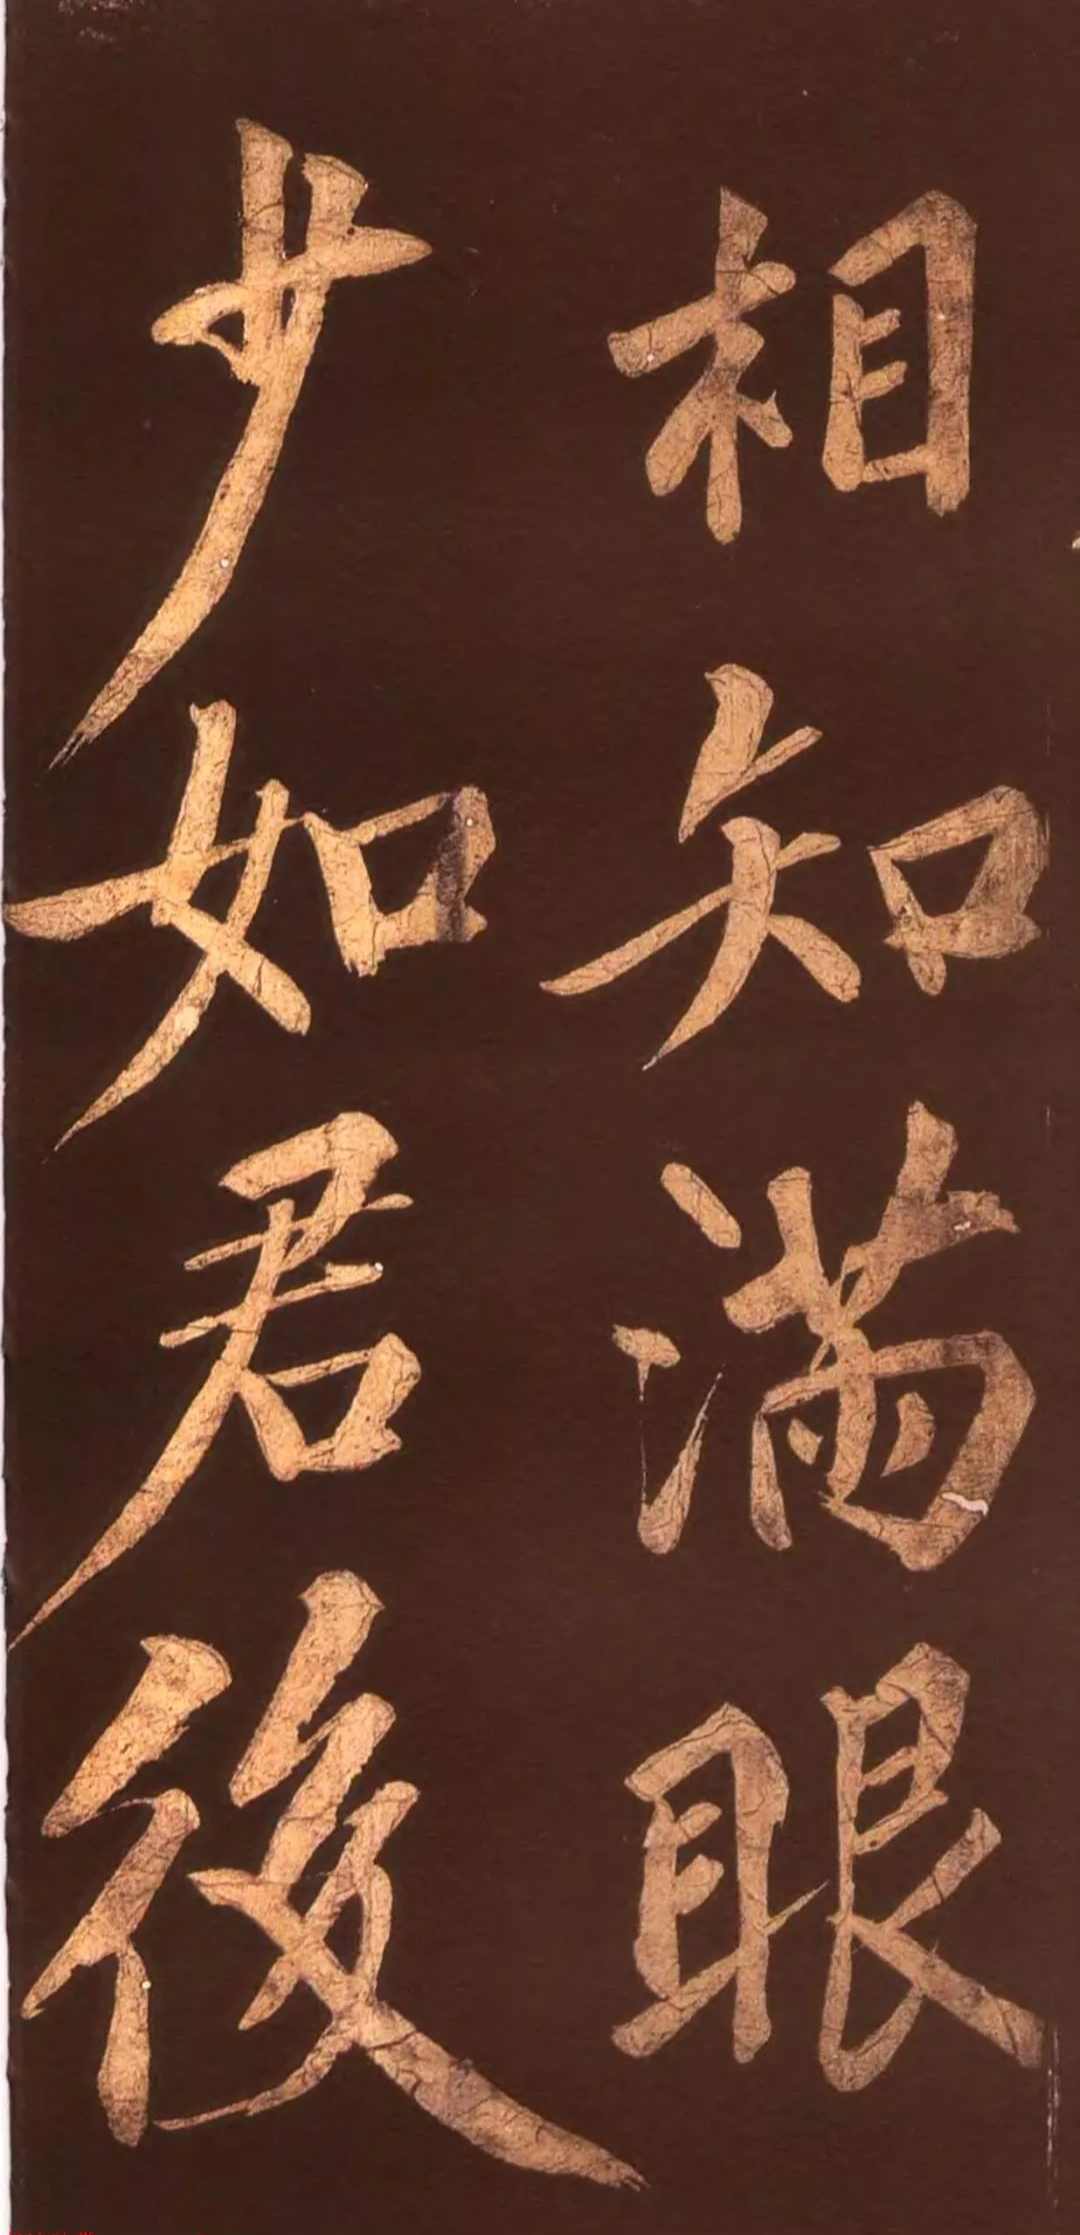 相知滿眼
少如君後